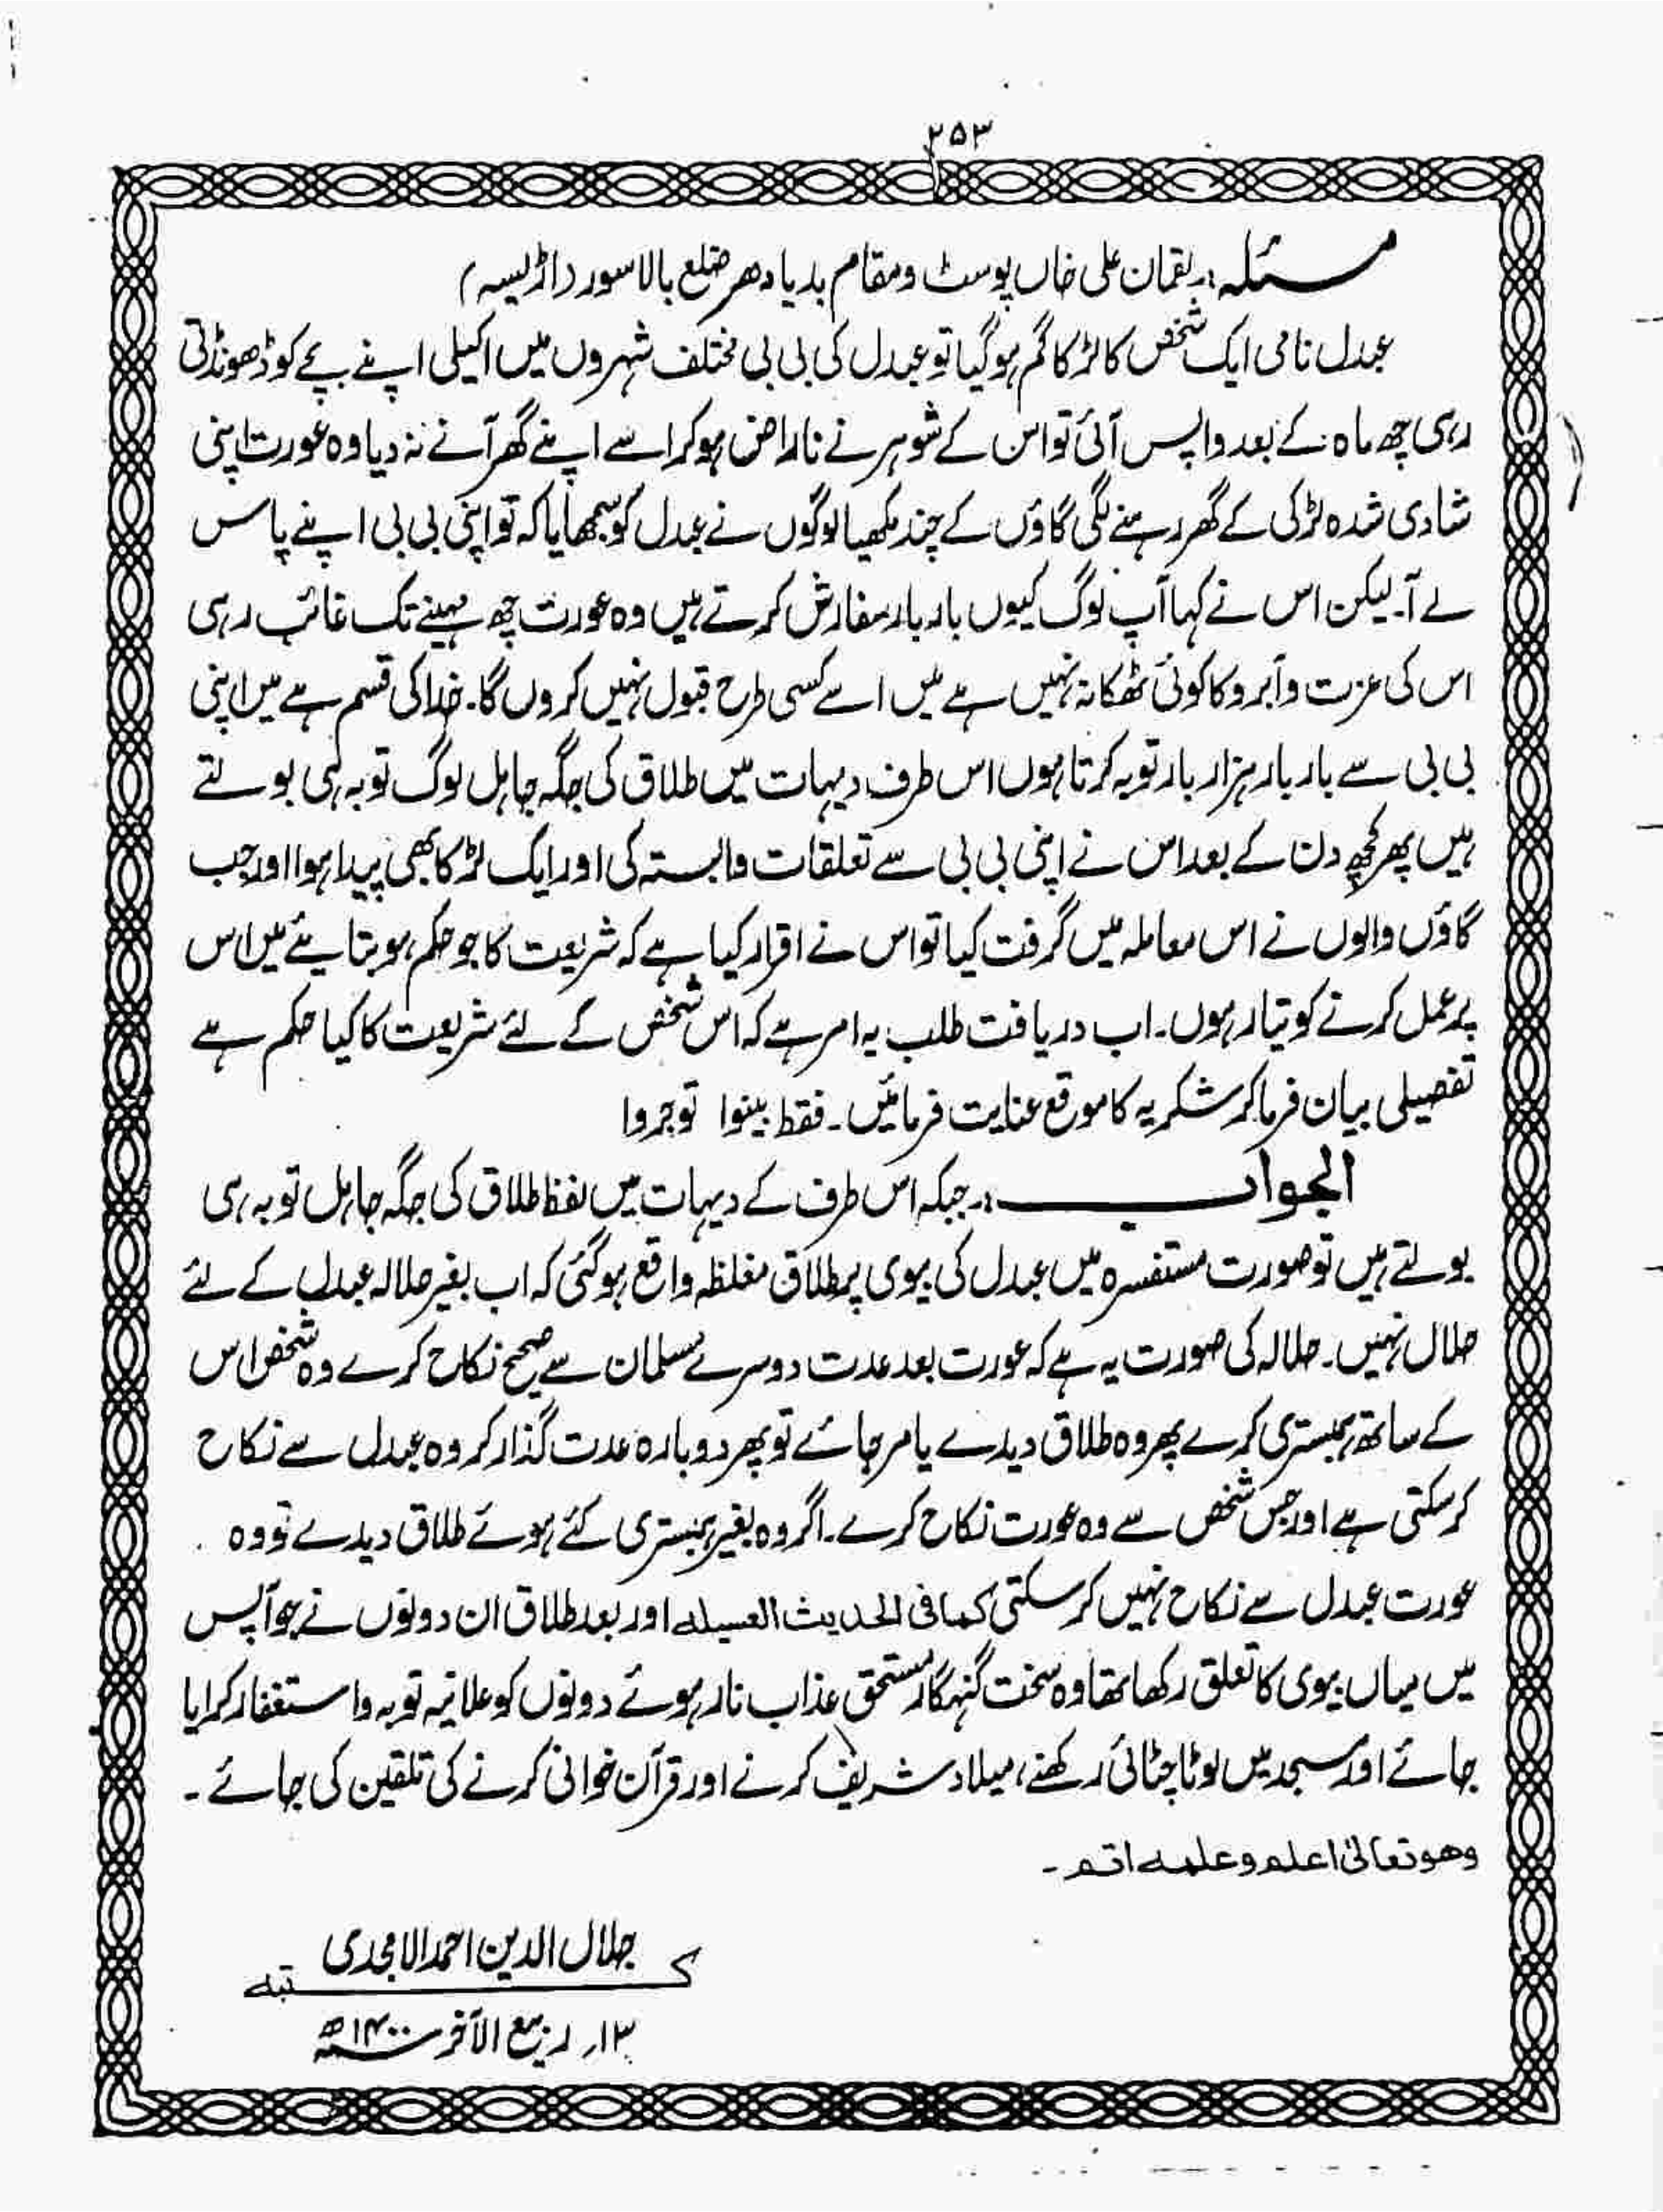 ۲۵۳
مسئلہ:۔ لقمان علی خاں پوسٹ ومقام بدیادھر ضلع بالاسور (اڑیسہ)
عبدل نامی ایک شخص کا لڑکا گم ہوگیا تو عبدل کی بی بی مختلف شہروں میں اکیلی اپنے بچے کو ڈھونڈتی
رہی چھ ماہ کے بعد واپس آئی تو اس کے شوہر نے ناراض ہوکر اسے اپنے گھر آنے نہ دیا وہ عورت اپنی
شادی شدہ لڑکی کے گھر رہنے لگی گاؤں کے چند مکھیا لوگوں نے عبدل کو سمجھایا کہ تو اپنی بی بی اپنے پاس
لے آ۔ لیکن اس نے کہا آپ لوگ کیوں بار بار سفارش کرتے ہیں وہ عورت چھ مہینے تک غائب رہی
اس کی عزت وآبرو کا کوئی ٹھکانہ نہیں ہے میں اسے کسی طرح قبول نہیں کروں گا۔ خدا کی قسم ہے میں اپنی
بی بی سے بار بار ہزار بار توبہ کرتا ہوں اس طرف دیہات میں طلاق کی جگہ جاہل لوگ توبہ ہی بولتے
ہیں پھر کچھ دن کے بعد اس نے اپنی بی بی سے تعلقات وابستہ کی اور ایک لڑکا بھی پیدا ہوا اور جب
گاؤں والوں نے اس معاملہ میں گرفت کیا تو اس نے اقرار کیا ہے کہ شریعت کا جو حکم ہو بتایئے میں اس
پر عمل کرنے کو تیار ہوں۔ اب دریافت طلب یہ امر ہے کہ اس شخص کے لئے شریعت کا کیا حکم ہے
تفصیلی بیان فرما کر شکریہ کا موقع عنایت فرمائیں۔ فقط بینوا توجروا
الجواب:۔ جبکہ اس طرف کے دیہات میں لفظ طلاق کی جگہ جاہل توبہ ہی
بولتے ہیں تو صورت مستفسرہ میں عبدل کی بیوی پر طلاق مغلظہ واقع ہوگئی کہ اب بغیر حلالہ عبدل کے لئے
حلال نہیں۔ حلالہ کی صورت یہ ہے کہ عورت بعد عدت دوسرے مسلمان سے صحیح نکاح کرے وہ شخص اس
کے ساتھ ہمبستری کرے پھر وہ طلاق دیدے یا مرجائے تو پھر دوبارہ عدت گذار کر وہ عبدل سے نکاح
کرسکتی ہے اور جس شخص سے وہ عورت نکاح کرے۔ اگر وہ بغیر ہمبستری کئے ہوئے طلاق دیدے تو وہ
عورت عبدل سے نکاح نہیں کرسکتی کمافی الحدیث العسیلہ اور بعد طلاق ان دونوں نے جو آپس
میں میاں بیوی کا تعلق رکھا تھا وہ سخت گنہگار مستحق عذاب نار ہوئے دونوں کو علانیہ توبہ واستغفار کرایا
جائے اور مسجد میں لوٹا چٹائی رکھنے، میلاد شریف کرنے اور قرآن خوانی کرنے کی تلقین کی جائے۔
وھو تعالیٰ اعلم وعلمہ اتم۔
جلال الدین احمد الامجدی
کتبہ
۱۳؍ ربیع الآخر ۱۴۰۰ھ